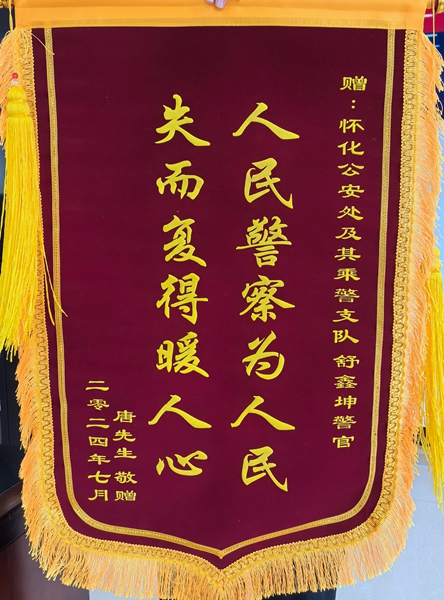 赠：怀化公安处及其乘警支队舒鑫坤警官
人民警察为人民
失而复得暖人心
唐先生 敬赠
二零二四年七月